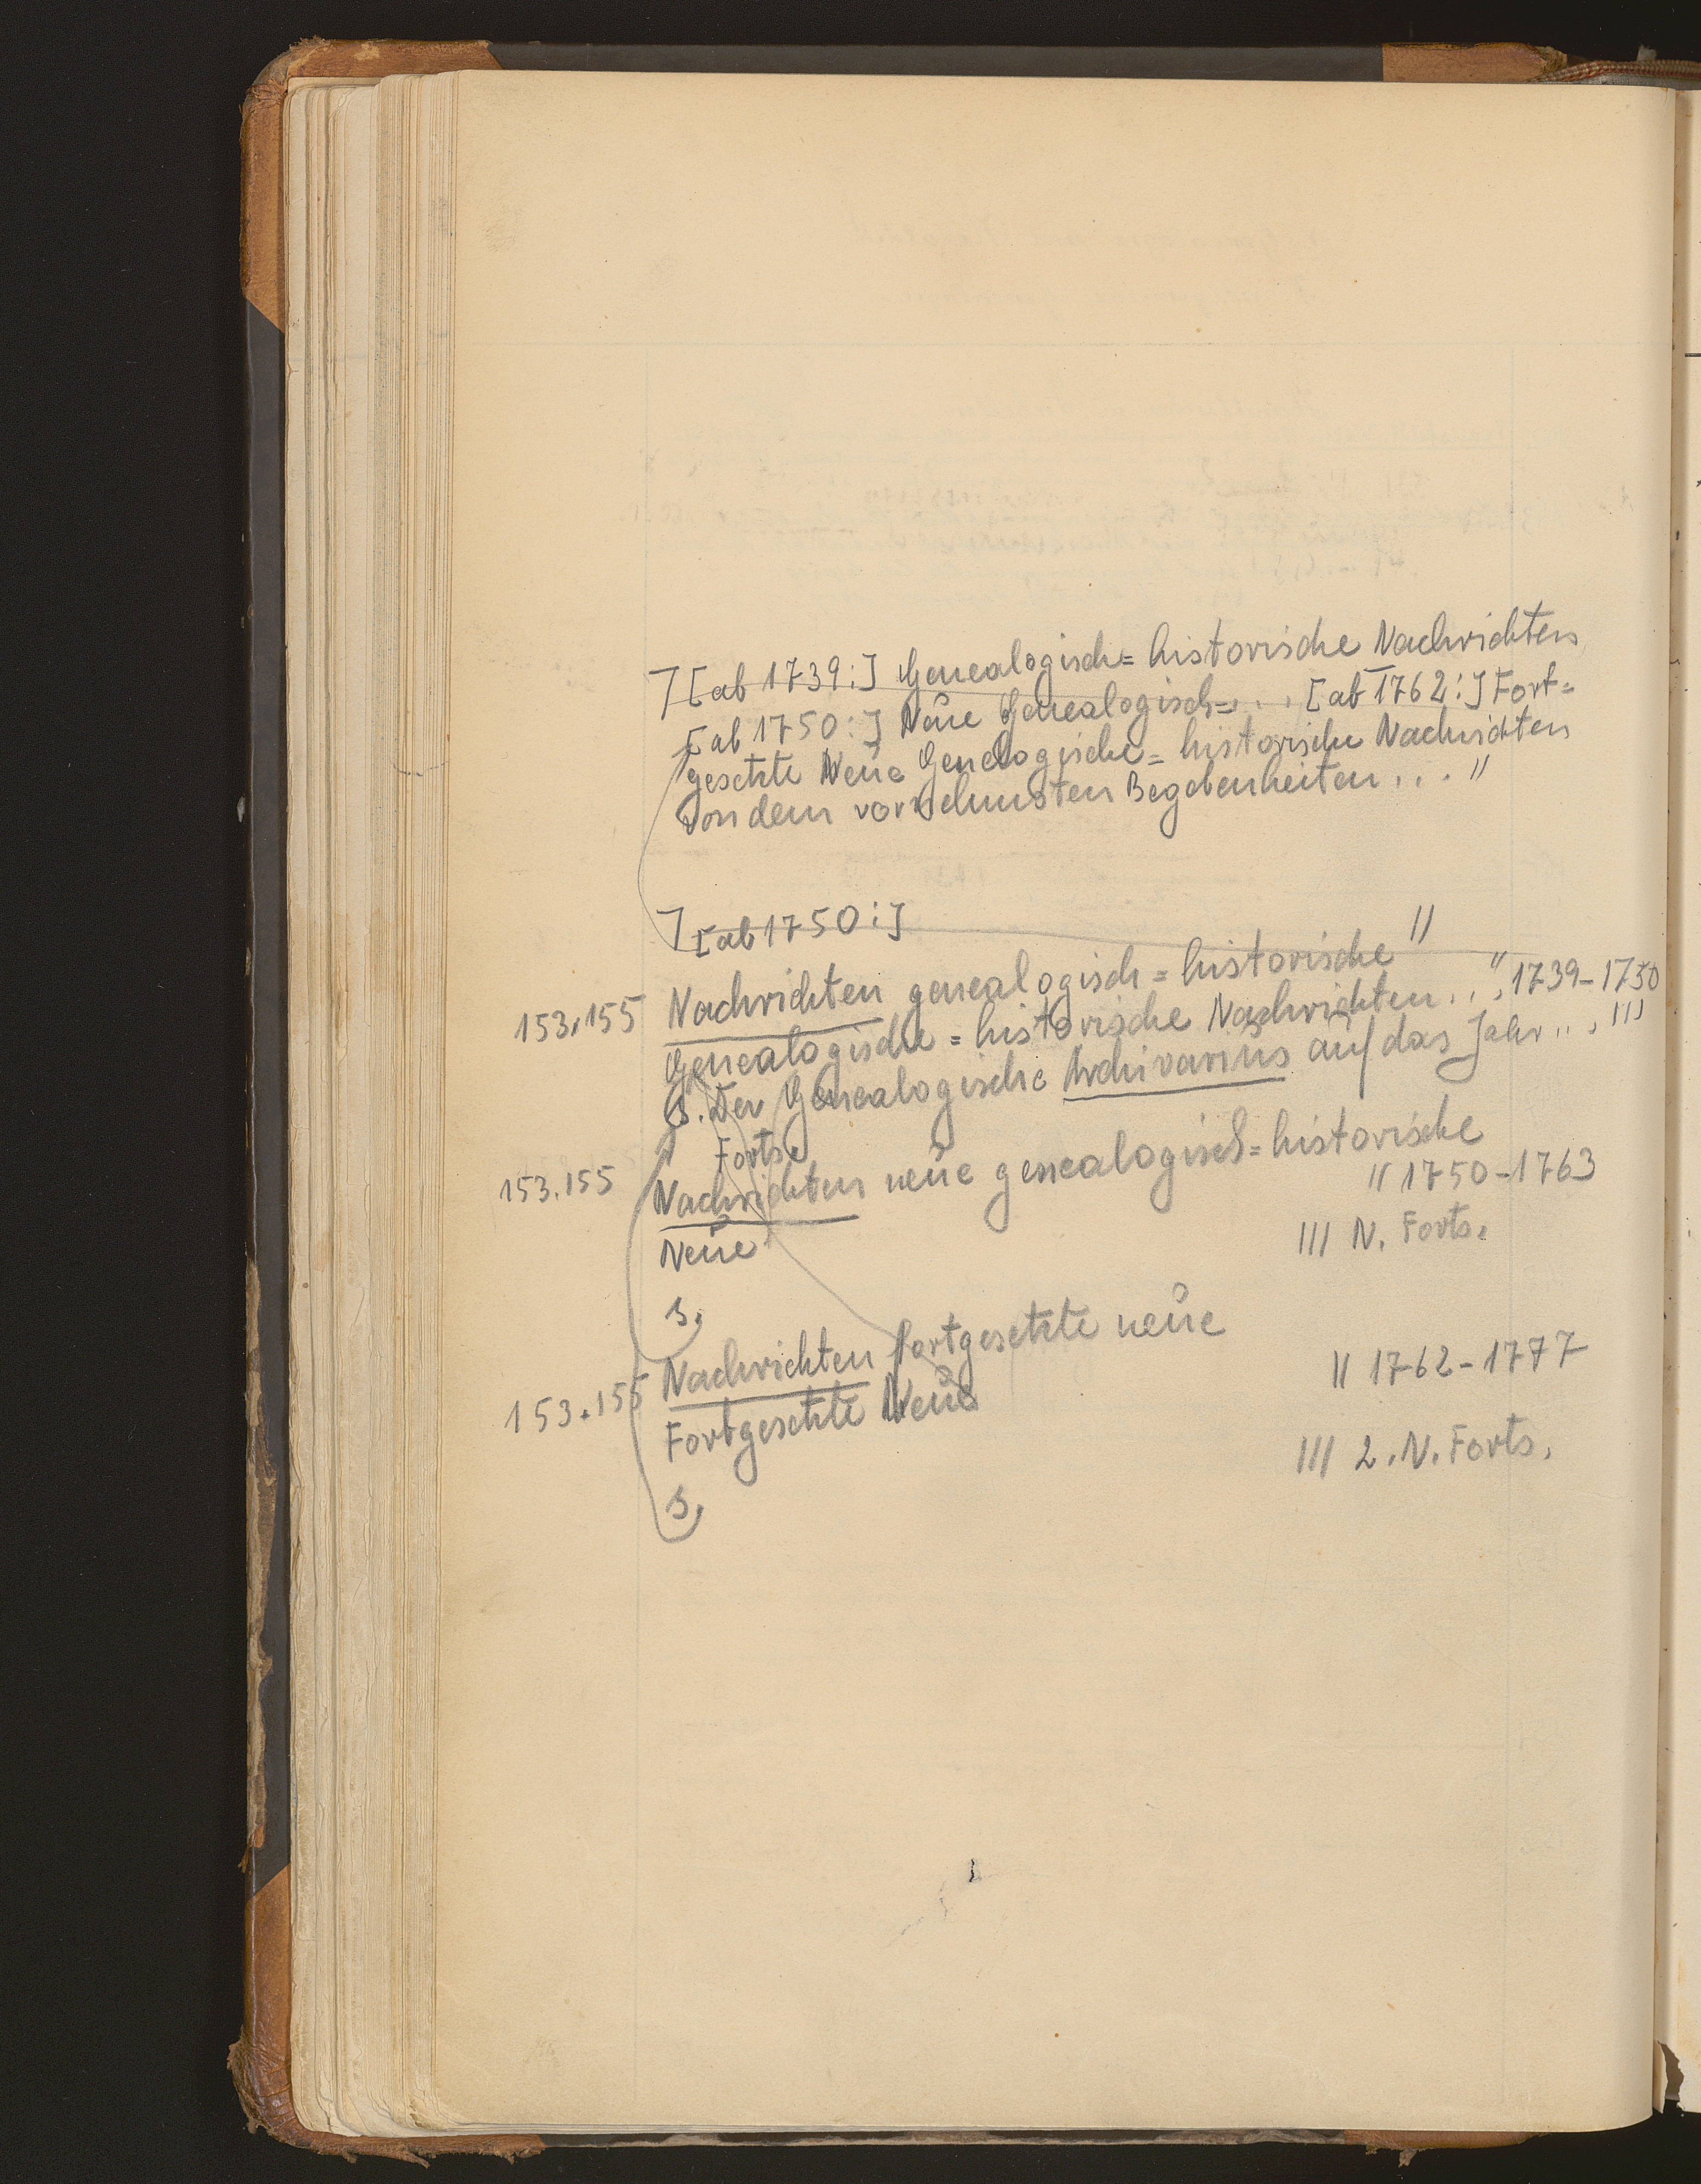 ⌉[ab 1739:] Genealogisch= historische Nachrichten
[ab 1750:] Neue Genealogisch=... [ab 1762:] Fort=
gesetzte Neue Genealogische= historische Nachrichten
von dem vornehmsten Begebenheiten ... "
⌉[ab 1750:]
Nachrichten genealogisch= historische "
153.155 Genealogische = historische Nachrichten .. ", 1739-1750
s. Der Genealogische Archivarius auf das Jahr ..., III
Forts.
153.155 Nachrichten neue genealogisch= historische
Neue " 1750-1763
III N. Forts.
s.
Nachrichten fortgesetzte neue
153.155 Fortgesetzte Neue || 1762-1777
III 2. N. Forts.
s.